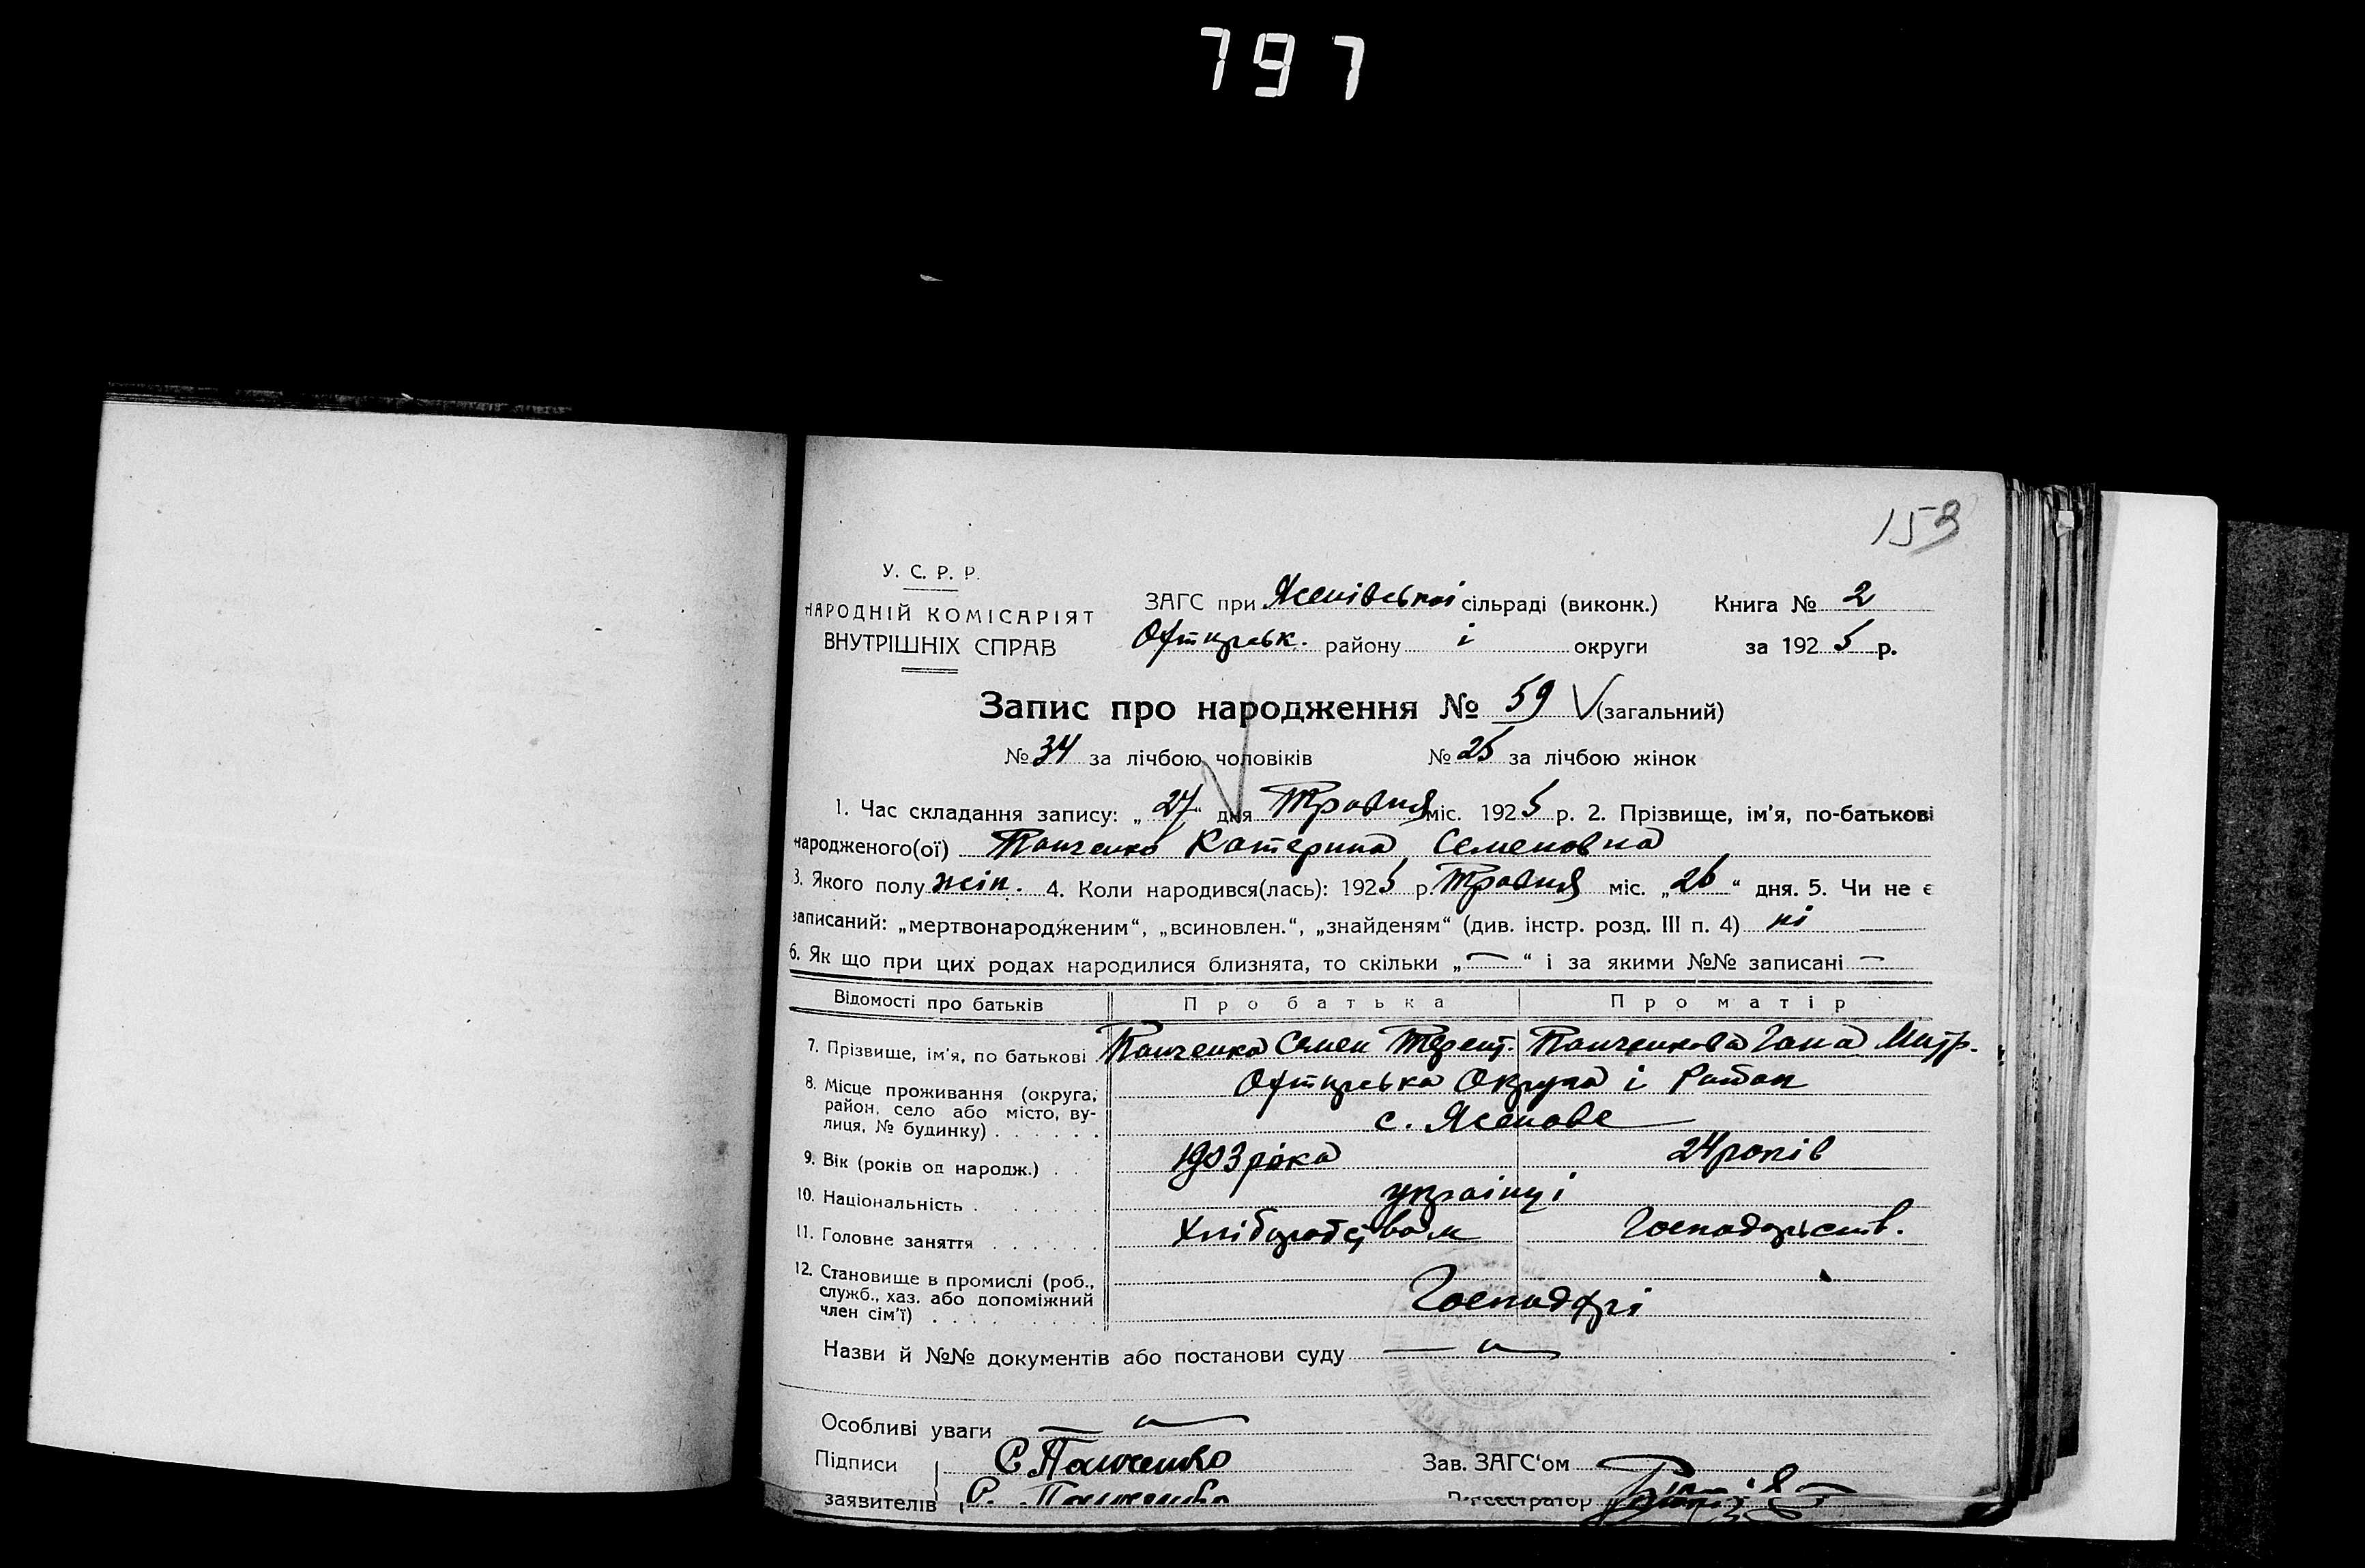 797
153
У. С. Р. Р.
НАРОДНІЙ КОМІСАРІЯТ
ВНУТРІШНІХ СПРАВ
ЗАГС при Ясенівській сільраді (виконк.) Книга № 2
Охтирськ. району і округи за 1925 р.
Запис про народження № 59 (загальний)
№ 34 за лічбою чоловіків № 25 за лічбою жінок
1. Час складання запису: „27“ дня Травня міс. 1925 р. 2. Прізвище, ім'я, по-батькові
народженого(ої) Панченко Катерина Семеновна
3. Якого полу жін. 4. Коли народився(лась): 1925 р. Травня міс. „26“ дня. 5. Чи не є
записаний: „мертвонародженим“, „всиновлен.“, „знайденям“ (див. інстр. розд. III п. 4) ні
6. Як що при цих родах народилися близнята, то скільки „—“ і за якими №№ записані —
Відомості про батьків Про батька Про матір
7. Прізвище, ім'я, по батькові Панченко Семен Терент. Панченкова Гана Митр.
8. Місце проживання (округа, район, село або місто, ву-
лиця, № будинку) Охтирська Округа і Район
с. Ясенове
9. Вік (років од народж.) 1903 рока 24 років
10. Національність українці
11. Головне заняття Хліборобством Господарств.
12. Становище в промислі (роб.,
служб., хаз. або допоміжний
член сім'ї) Господарі
Назви й №№ документів або постанови суду —
Особливі уваги —
Підписи С. Панченко Зав. ЗАГС'ом
заявителів С. Панченко Реєстратор